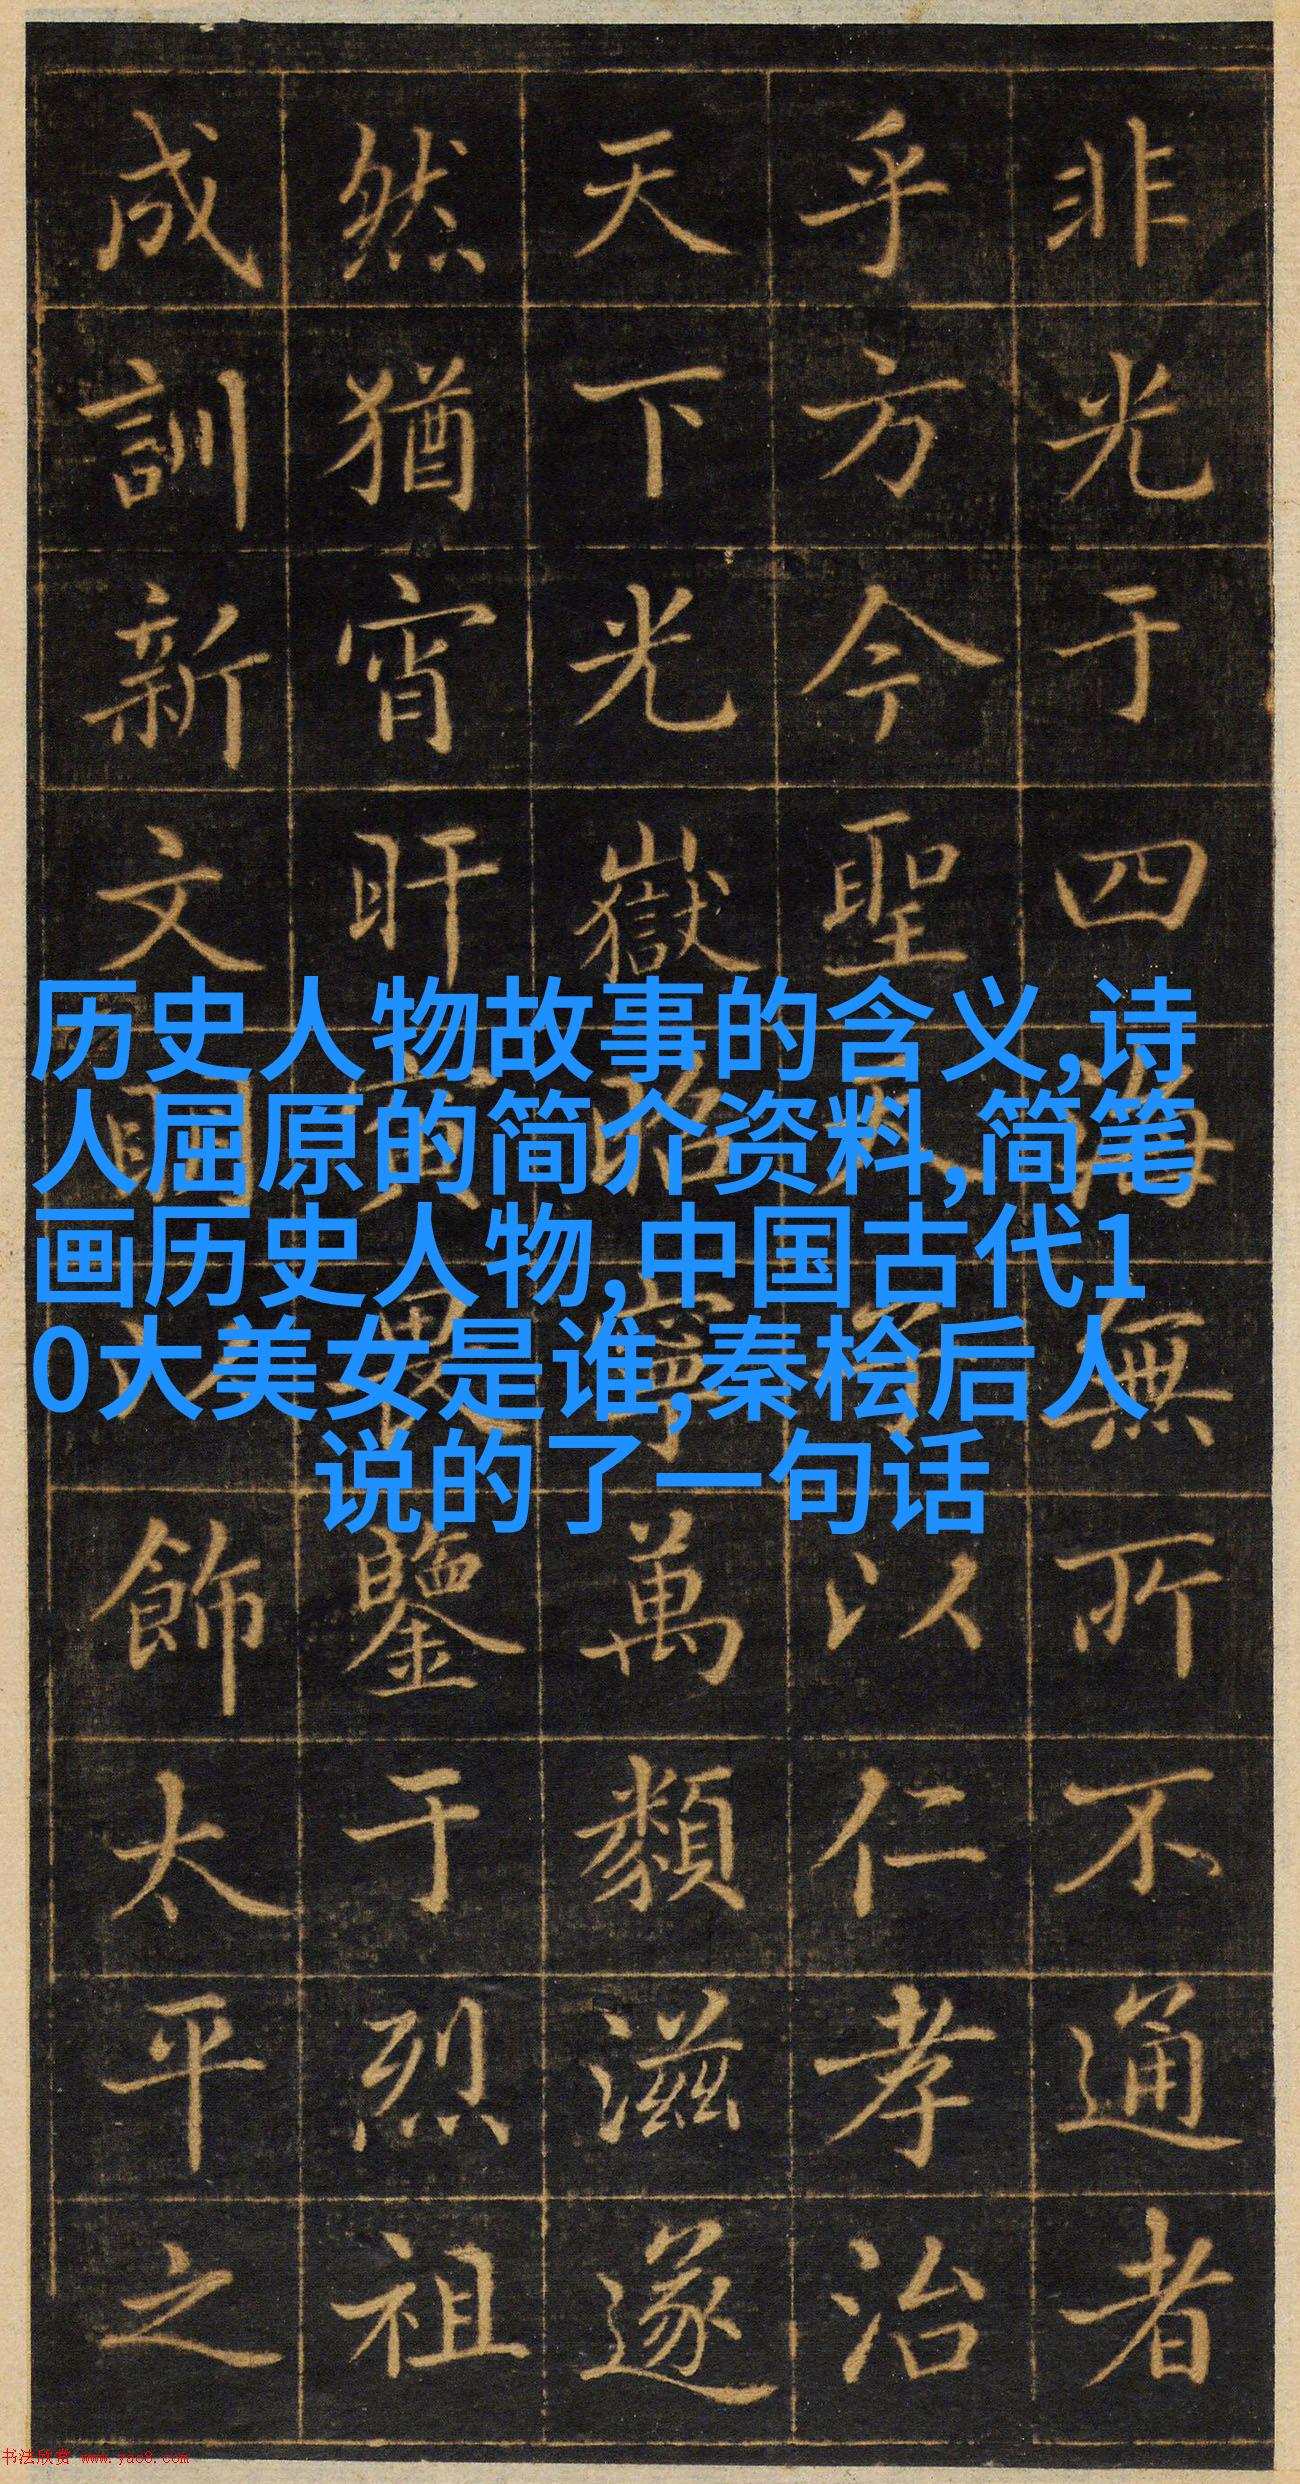 非光于四海無所不通者
乎方今聖以仁孝治
天下光嶽昭寧萬類滋遂
然猶宵旰寅畏鑒于烈祖
成訓新文明飾太平之
历史人物故事的含义,诗
人屈原的简介资料,简笔
画历史人物,中国古代1
0大美女是谁,秦桧后人
说的了一句话
书法欣赏 www.yac8.com